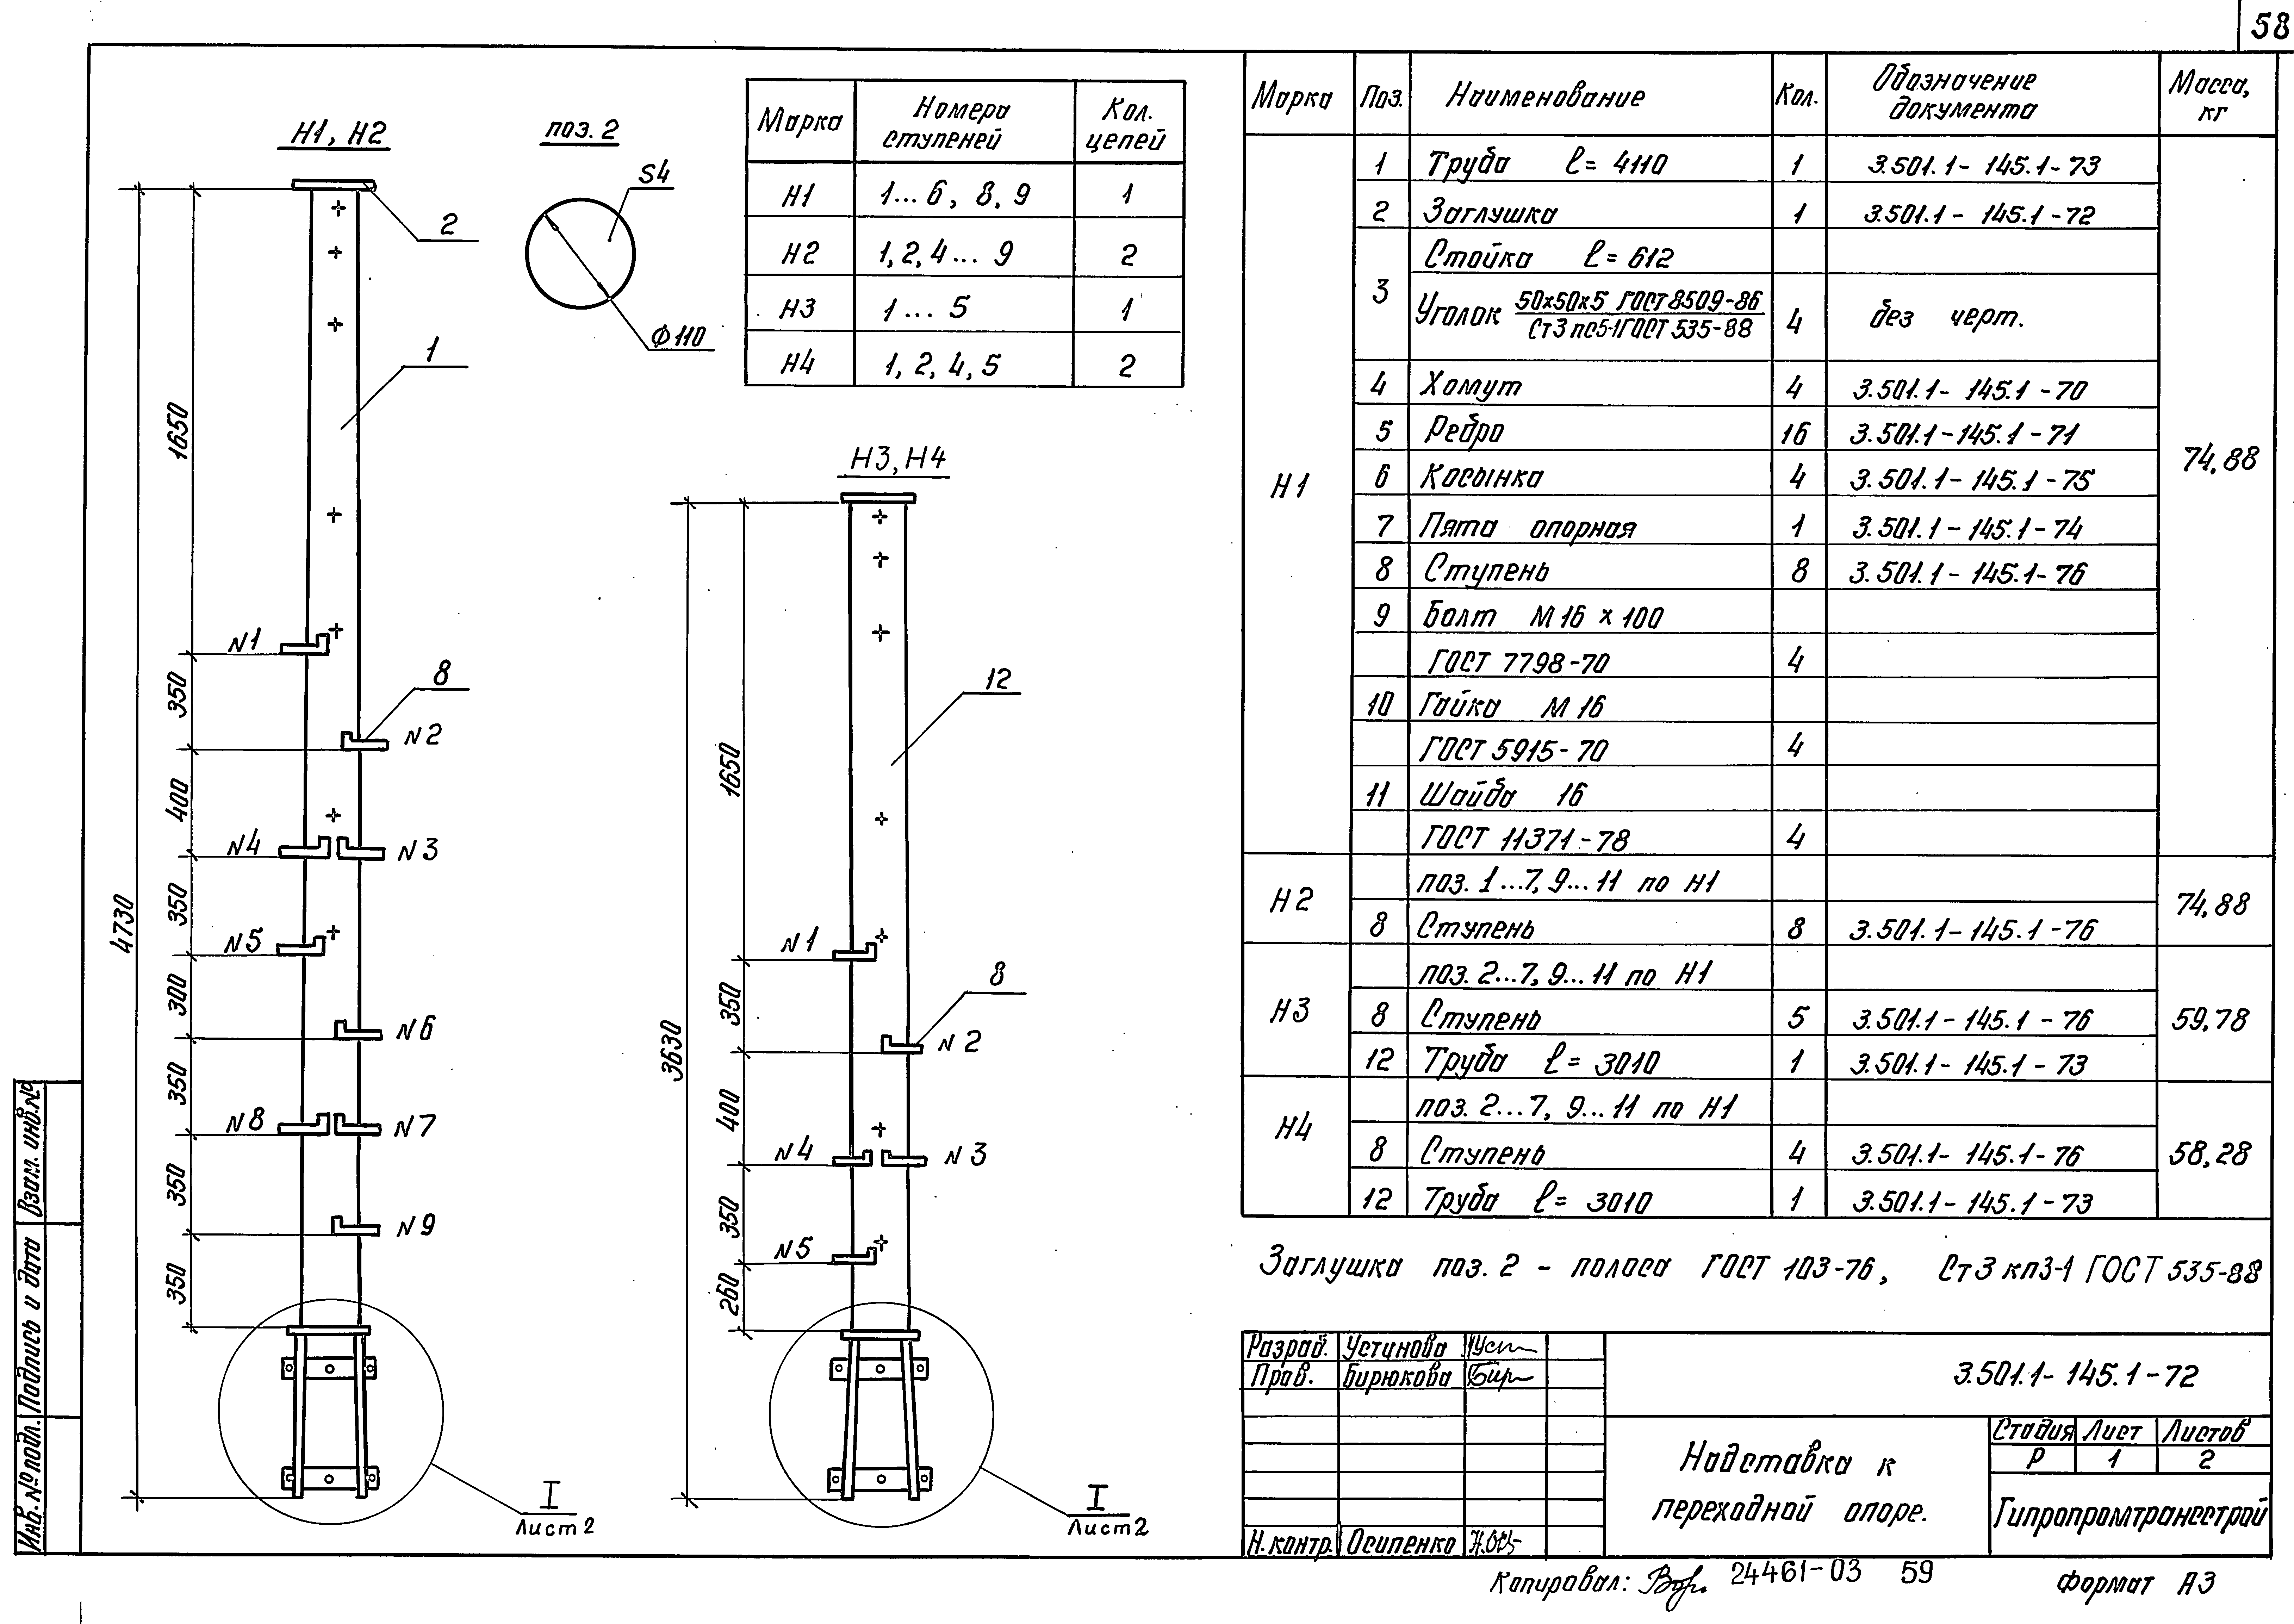 58
Н1, Н2
поз. 2
S4
Ф110
2
1
8
N1
N2
N4
N3
N5
N6
N8
N7
N9
4730
1650
350
400
350
300
350
350
350
I
Лист 2
Марка Номера ступеней Кол. цепей
Н1 1... 6, 8, 9 1
Н2 1, 2, 4... 9 2
Н3 1... 5 1
Н4 1, 2, 4, 5 2
Н3, Н4
12
8
N1
N2
N4
N3
N5
3630
1650
350
400
350
260
I
Лист 2
Марка Поз. Наименование Кол. Обозначение документа Масса, кг
Н1 74,88
1 Труба ℓ= 4110 1 3.501.1- 145.1-73
2 Заглушка 1 3.501.1- 145.1-72
3 Стойка ℓ= 612
Уголок 50х50х5 ГОСТ 8509-86 4 без черт.
Ст3 пс5-1 ГОСТ 535-88
4 Хомут 4 3.501.1- 145.1-70
5 Ребро 16 3.501.1-145.1-71
6 Косынка 4 3.501.1-145.1-75
7 Пята опорная 1 3.501.1-145.1-74
8 Ступень 8 3.501.1-145.1-76
9 Болт М16 х 100
ГОСТ 7798-70 4
10 Гайка М16
ГОСТ 5915-70 4
11 Шайба 16
ГОСТ 11371-78 4
Н2 74,88
поз. 1...7, 9...11 по Н1
8 Ступень 8 3.501.1-145.1-76
Н3 59,78
поз. 2...7, 9...11 по Н1
8 Ступень 5 3.501.1-145.1-76
12 Труба ℓ= 3010 1 3.501.1-145.1-73
Н4 58,28
поз. 2...7, 9...11 по Н1
8 Ступень 4 3.501.1-145.1-76
12 Труба ℓ= 3010 1 3.501.1-145.1-73
Заглушка поз. 2 - полоса ГОСТ 103-76, Ст3 кп3-1 ГОСТ 535-88
Разраб. Устинова
Пров. Бирюкова
Н.контр. Осипенко
3.501.1-145.1-72
Надставка к
переходной опоре.
Стадия Лист Листов
Р 1 2
Гипропромтрансстрой
Инв. № подл. Подпись и дата Взам. инв. №
Копировал: 24461-03 59 Формат А3